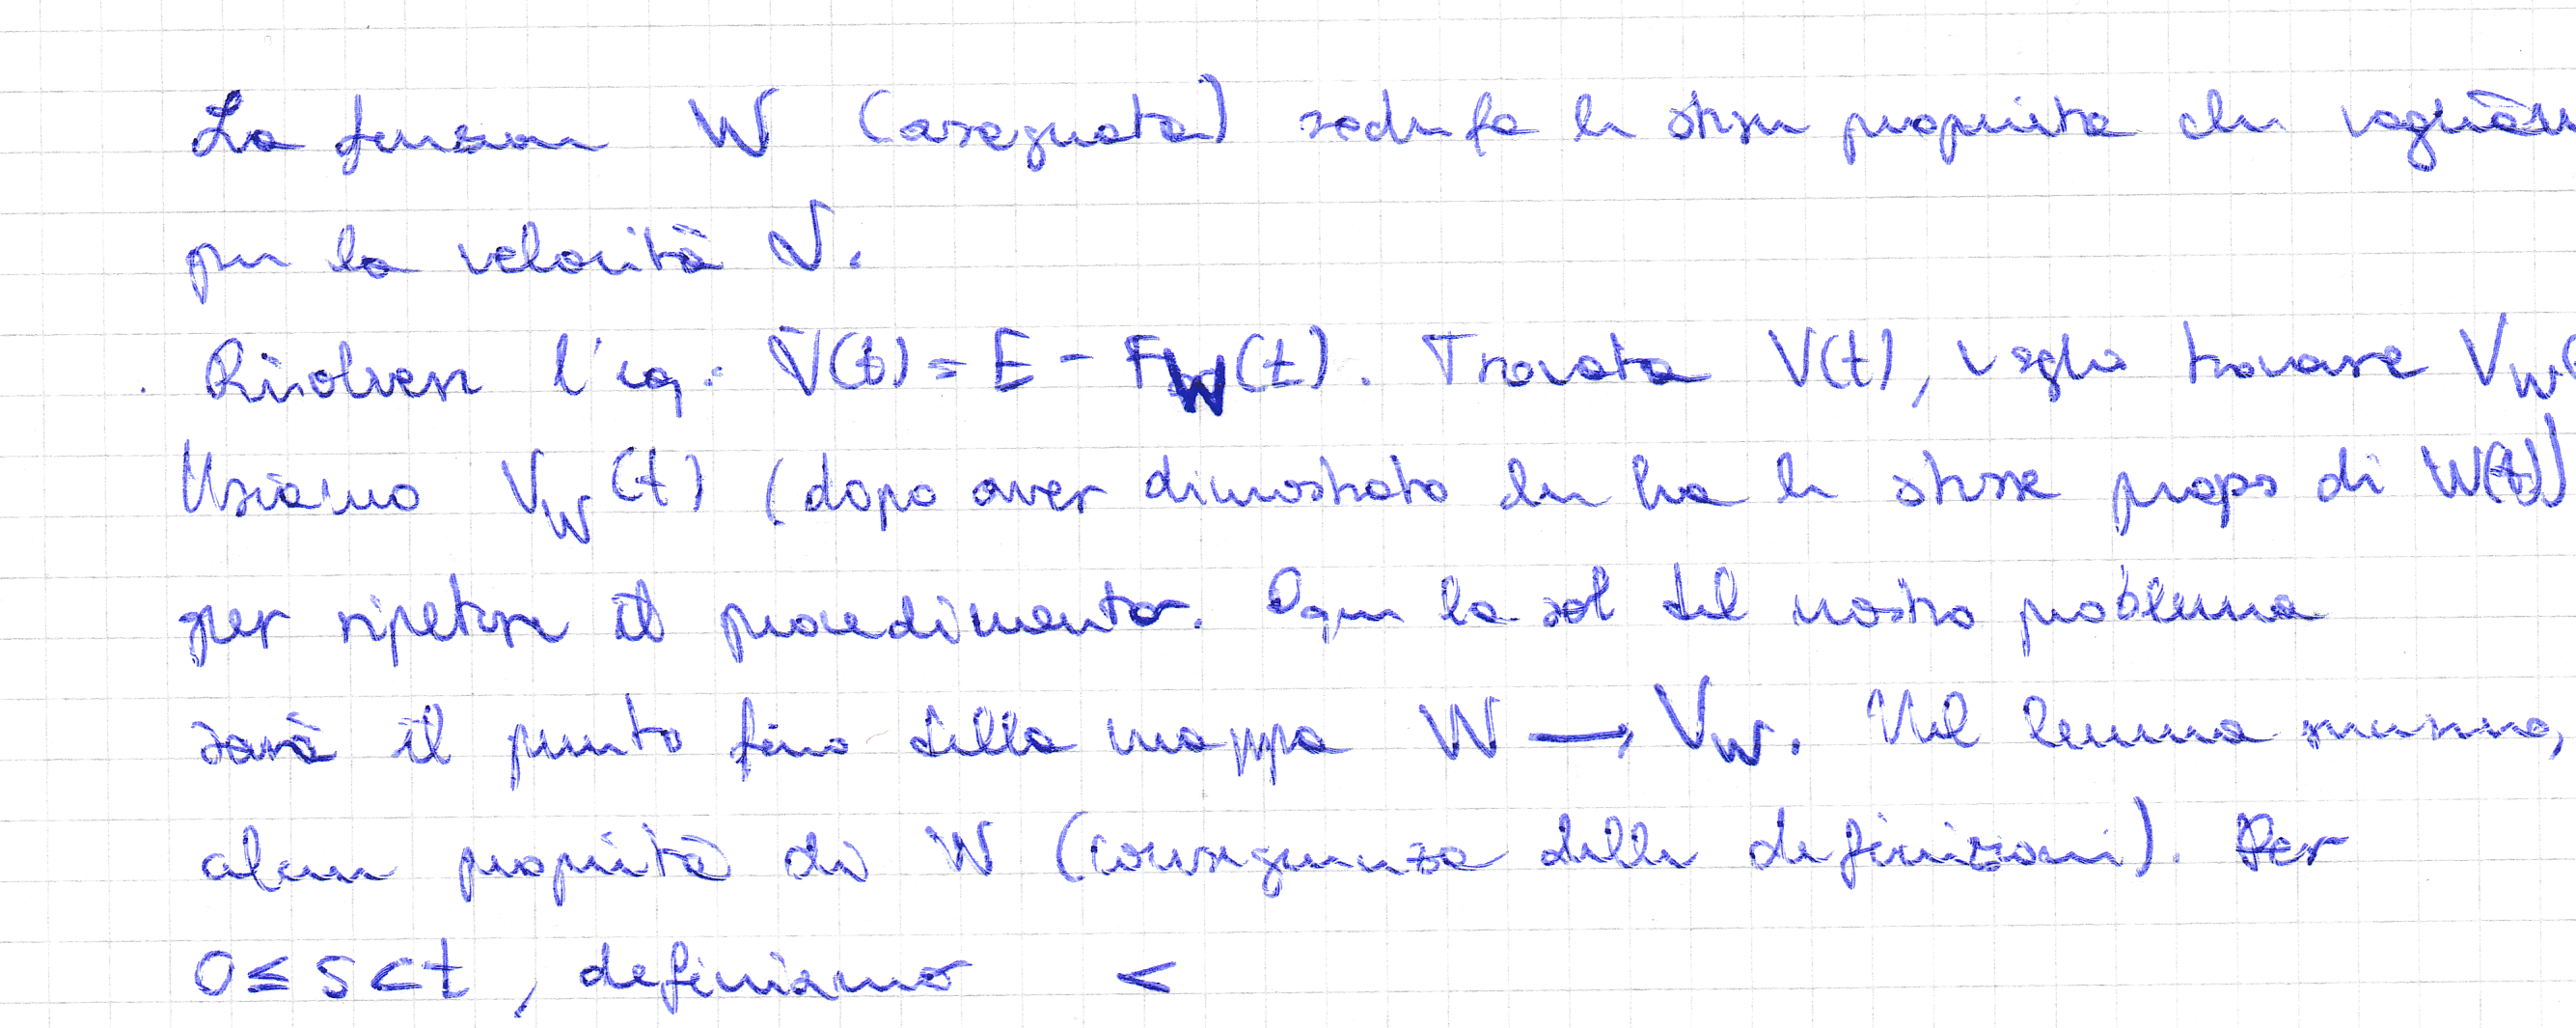 La funzione W (assegnata) soddisfa le stesse proprietà che vogliamo
per la velocità V.
Risolvere l'eq.: V̇(t) = E - F_W(t). Trovata V(t), voglio trovare V_W(
Usiamo V_W(t) (dopo aver dimostrato che ha le stesse props di W(t))
per ripetere il procedimento. Ogni la sol del nostro problema
sarà il punto fisso della mappa W → V_W. Nel lemma
alcune proprietà di W (conseguenza delle definizioni). Per
0 ≤ s < t, definiamo <